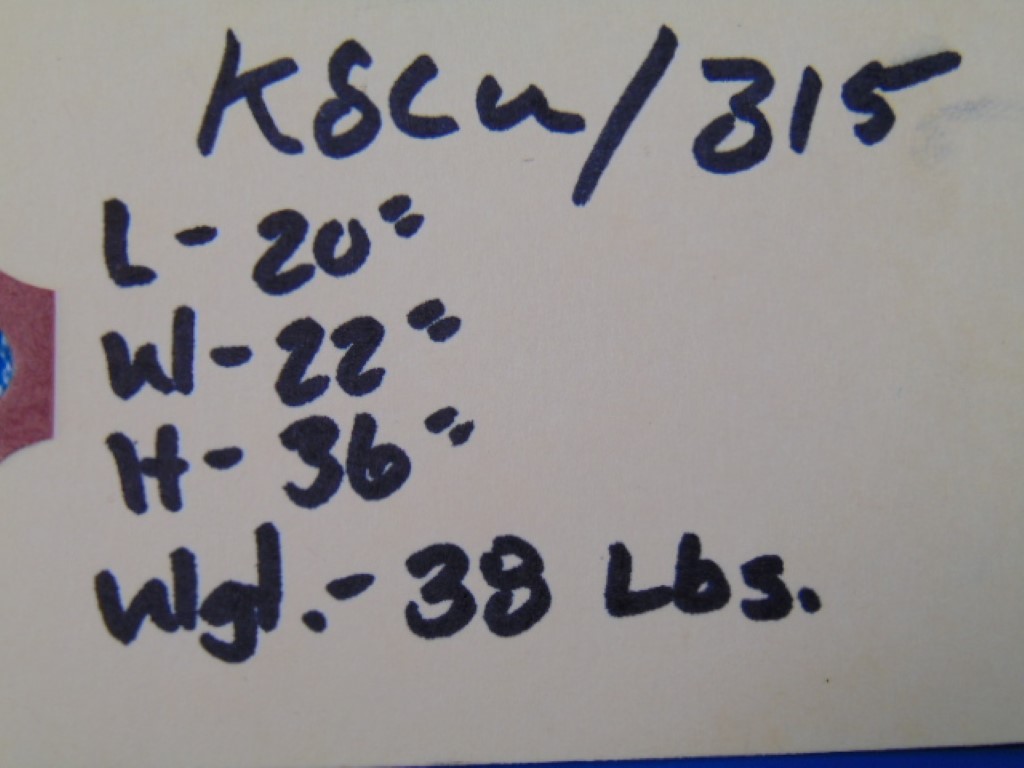 K8Cu/315
L-20"
W-22"
H-36"
Wgt.-38 Lbs.